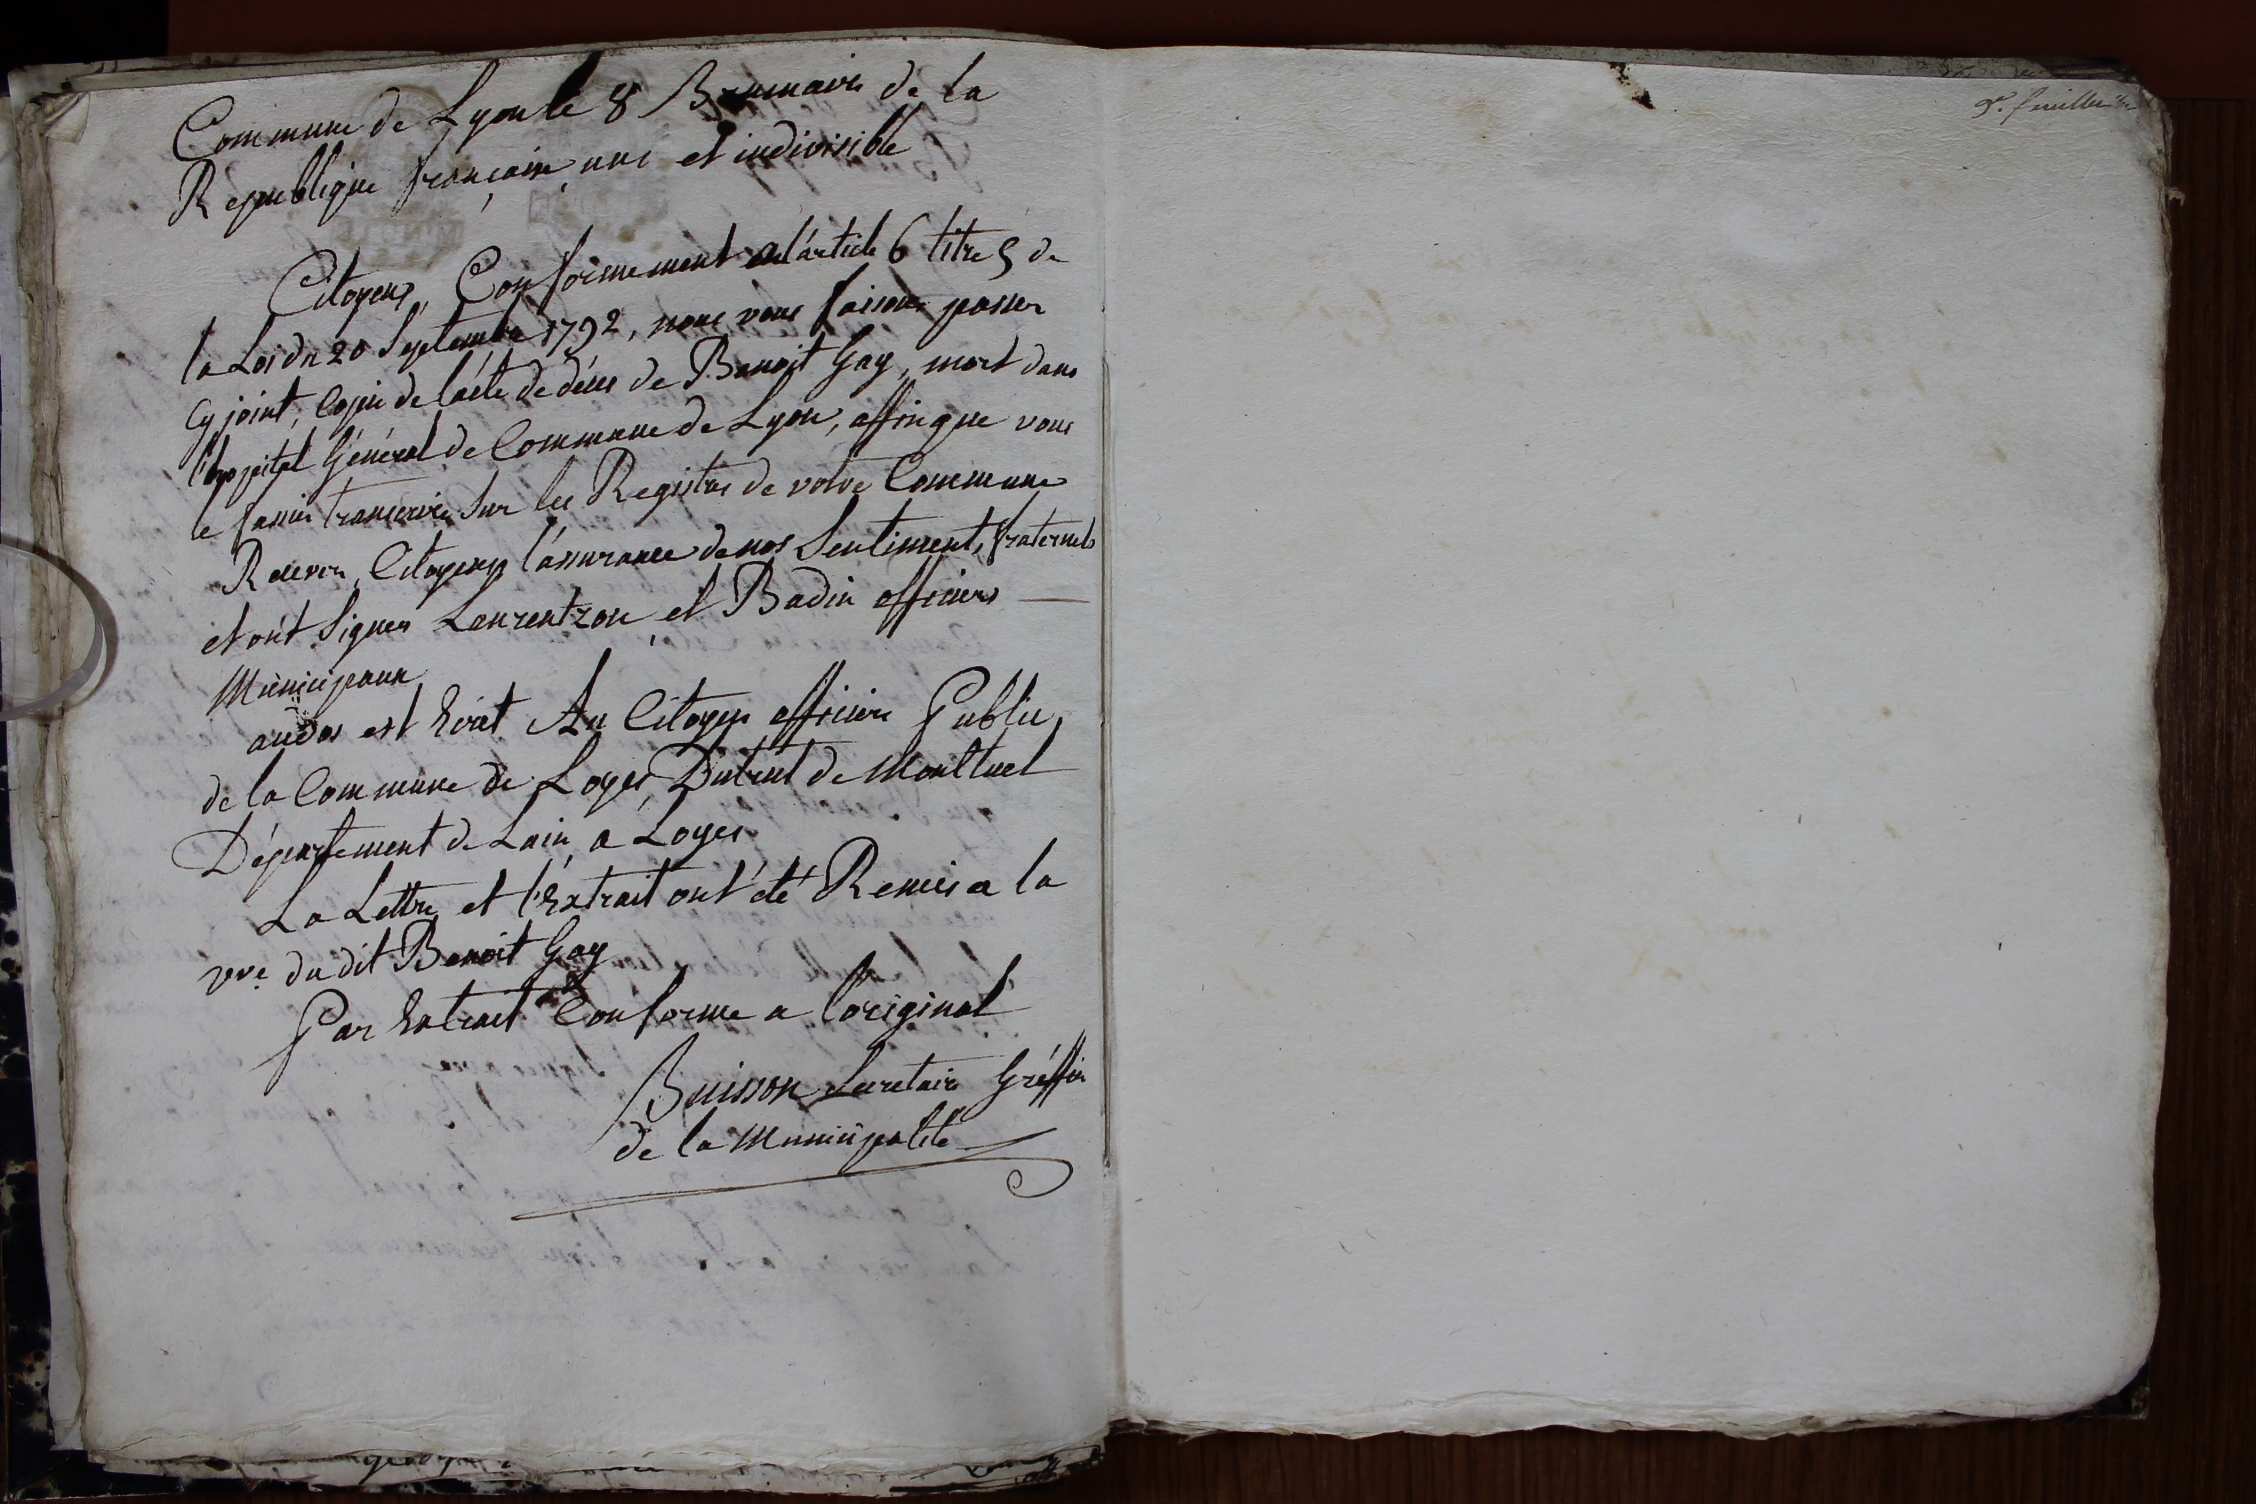 Commune de Lyon le 8 Brumaire de la
Republique françoise une et indivisible
Citoyens, Conformement a l'article 6 titre 5 de
la Loi du 20 Septembre 1792, nous vous faisons passer
Cy joint, Copie de l'acte de déces de Benoit Gay, mort dans
l'hopital Général de Commune de Lyon, affin que vous
le fassies transcrire Sur les Registres de votre Commune
Recever, Citoyens l'assurance de nos Sentiments fraternels
et ont Signer Laurentzon et Badin officiers
Municipaux
au dos est Ecrit Au Citoyen officier Public
de la Commune de Loyes, District de Montluel
Département de Lain, a Loyes
La Lettre et l'Extrait ont été Remis a la
vve. du dit Benoit Gay
Par Extrait Conforme a l'original
Buisson Secretaire Gréffier
de la Municipalité
9e. feuillet